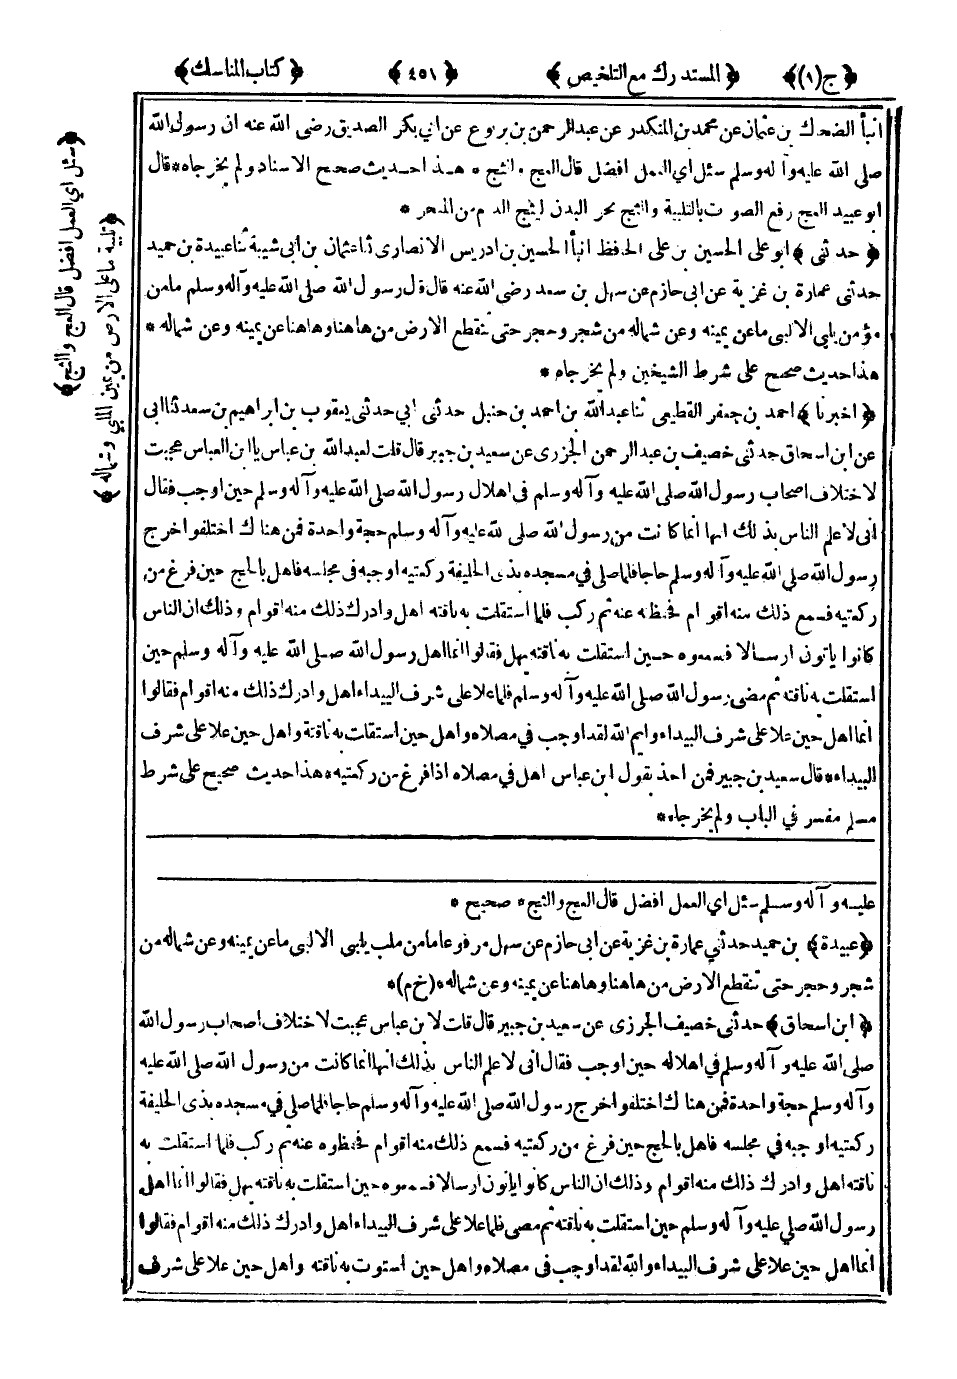 ﴿ج(١)﴾ ﴿المستدرك مع التلخيص﴾ ﴿٤٥١﴾ ﴿كتاب المناسك﴾
انبأ الضحاك بن عثمان عن محمد بن المنكدر عن عبدالرحمن بن يربوع عن ابي بكر الصديق رضى الله عنه ان رسول الله
صلى الله عليه وآله وسلم سئل اي العمل افضل قال العج والثج * هـذا حديث صحيح الاسناد ولم يخرجاه * قال
ابو عبيد العج رفع الصوت بالتلبية والثج نحر البدن ليثج الدم من المنحر *
﴿حدثنى﴾ ابو على الحسين بن على الحافظ انبأ الحسين بن ادريس الانصارى ثنا عثمان بن ابى شيبة ثنا عبيدة بن حميد
حدثنى عمارة بن غزية عن ابى حازم عن سهل بن سعد رضى الله عنه قال قال رسول الله صلى الله عليه وآله وسلم مامن
مؤمن يلبى الا لبى ماعن يمينه وعن شماله من شجر وحجر حتى تنقطع الارض من هاهنا وهاهنا عن يمينه وعن شماله *
هذا حديث صحيح على شرط الشيخين ولم يخرجاه *
﴿اخبرنا﴾ احمد بن جعفر القطيعى ثنا عبدالله بن احمد بن حنبل حدثنى ابي حدثنى يعقوب بن ابراهيم بن سعد ثنا ابى
عن ابن اسحاق حدثنى خصيف بن عبدالرحمن الجزرى عن سعيد بن جبير قال قلت لعبدالله بن عباس يا ابن العباس عجبت
لاختلاف اصحاب رسول الله صلى الله عليه وآله وسلم فى اهلال رسول الله صلى الله عليه وآله وسلم حين اوجب فقال
انى لاعلم الناس بذلك انها انما كانت من رسول الله صلى الله عليه وآله وسلم حجة واحدة فمن هناك اختلفوا خرج
رسول الله صلى الله عليه وآله وسلم حاجا فلما صلى في مسجده بذى الحليفة ركعتيه اوجبه فى مجلسه فاهل بالحج حين فرغ من
ركعتيه فسمع ذلك منه اقوام فحفظه عنه ثم ركب فلما استقلت به ناقته اهل وادرك ذلك منه اقوام وذلك ان الناس
كانوا ياتون ارسالا فسمعوه حين استقلت به ناقته يهل فقالوا انما اهل رسول الله صلى الله عليه وآله وسلم حين
استقلت به ناقته ثم مضى رسول الله صلى الله عليه وآله وسلم فلما علا على شرف البيداء اهل وادرك ذلك منه اقوام فقالوا
انما اهل حين علا على شرف البيداء وايم الله لقد اوجب في مصلاه واهل حين استقلت به ناقته واهل حين علا على شرف
البيداء * قال سعيد بن جبير فمن اخذ بقول ابن عباس اهل في مصلاه اذا فرغ من ركعتيه * هذا حديث صحيح على شرط
مسلم مفسر في الباب ولم يخرجاه *
عليه وآله وسلم سئل اي العمل افضل قال العج والثج * صحيح *
﴿عبيدة﴾ بن حميد حدثني عمارة بن غزية عن ابى حازم عن سهل مرفوعا مامن ملب يلبى الا لبى ماعن يمينه وعن شماله من
شجر وحجر حتى تنقطع الارض من هاهنا وهاهنا عن يمينه وعن شماله * (خ م) *
﴿ابن اسحاق﴾ حدثنى خصيف الجزرى عن سعيد بن جبير قال قلت لابن عباس عجبت لاختلاف اصحاب رسول الله
صلى الله عليه وآله وسلم في اهلاله حين اوجب فقال انى لاعلم الناس بذلك انها انما كانت من رسول الله صلى الله عليه
وآله وسلم حجة واحدة فمن هناك اختلفوا خرج رسول الله صلى الله عليه وآله وسلم حاجا فلما صلى في مسجده بذى الحليفة
ركعتيه اوجبه في مجلسه فاهل بالحج حين فرغ من ركعتيه فسمع ذلك منه اقوام فحفظوه عنه ثم ركب فلما استقلت به
ناقته اهل وادرك ذلك منه اقوام وذلك ان الناس كانوا ياتون ارسالا فسمعوه حين استقلت به ناقته يهل فقالوا انما اهل
رسول الله صلي عليه وآله وسلم حين استقلت به ناقته ثم مضى فلما علا على شرف البيداء اهل وادرك ذلك منه اقوام فقالوا
انما اهل حين علا على شرف البيداء والله لقد اوجب فى مصلاه واهل حين استوت به ناقته واهل حين علا على شرف
﴿سئل اي العمل افضل قال العج والثج﴾
﴿تلبية ما على الارض من عن يمين الملبي وشماله﴾